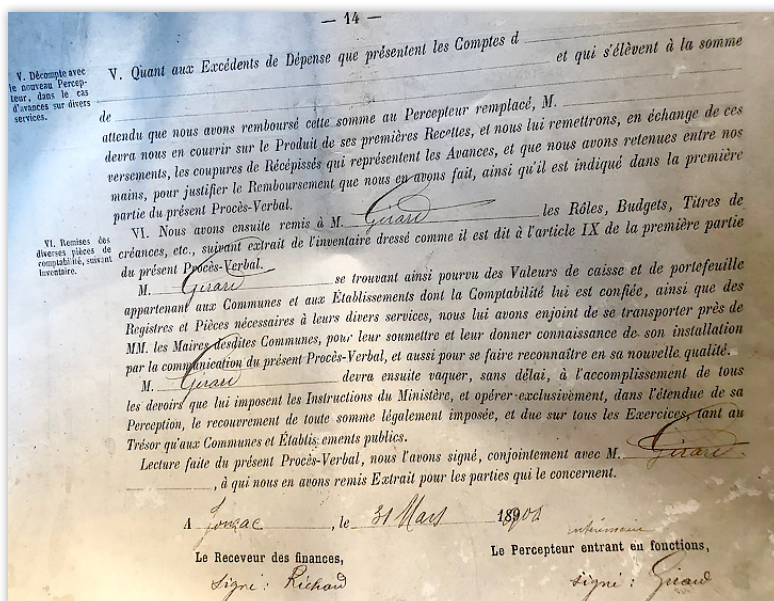 — 14 —
V. Décompte avec
le nouveau Percep-
teur, dans le cas
d'avances sur divers
services.
V. Quant aux Excédents de Dépense que présentent les Comptes d
et qui s'élèvent à la somme
de
attendu que nous avons remboursé cette somme au Percepteur remplacé, M.
devra nous en couvrir sur le Produit de ses premières Recettes, et nous lui remettrons, en échange de ces
versements, les coupures de Récépissés qui représentent les Avances, et que nous avons retenues entre nos
mains, pour justifier le Remboursement que nous en avons fait, ainsi qu'il est indiqué dans la première
partie du présent Procès-Verbal.
VI. Remises des
diverses pièces de
comptabilité, suivant
Inventaire.
VI. Nous avons ensuite remis à M. Girard les Rôles, Budgets, Titres de
créances, etc., suivant extrait de l'inventaire dressé comme il est dit à l'article IX de la première partie
du présent Procès-Verbal.
M. Girard se trouvant ainsi pourvu des Valeurs de caisse et de portefeuille
appartenant aux Communes et aux Établissements dont la Comptabilité lui est confiée, ainsi que des
Registres et Pièces nécessaires à leurs divers services, nous lui avons enjoint de se transporter près de
MM. les Maires desdites Communes, pour leur soumettre et leur donner connaissance de son installation
par la communication du présent Procès-Verbal, et aussi pour se faire reconnaître en sa nouvelle qualité.
M. Girard devra ensuite vaquer, sans délai, à l'accomplissement de tous
les devoirs que lui imposent les Instructions du Ministère, et opérer exclusivement, dans l'étendue de sa
Perception, le recouvrement de toute somme légalement imposée, et due sur tous les Exercices, tant au
Trésor qu'aux Communes et Établissements publics.
Lecture faite du présent Procès-Verbal, nous l'avons signé, conjointement avec M. Girard
, à qui nous en avons remis Extrait pour les parties qui le concernent.
A Jonzac, le 31 Mars 1900
intérimaire
Le Receveur des finances,
Le Percepteur entrant en fonctions,
signé : Richard
signé : Girard